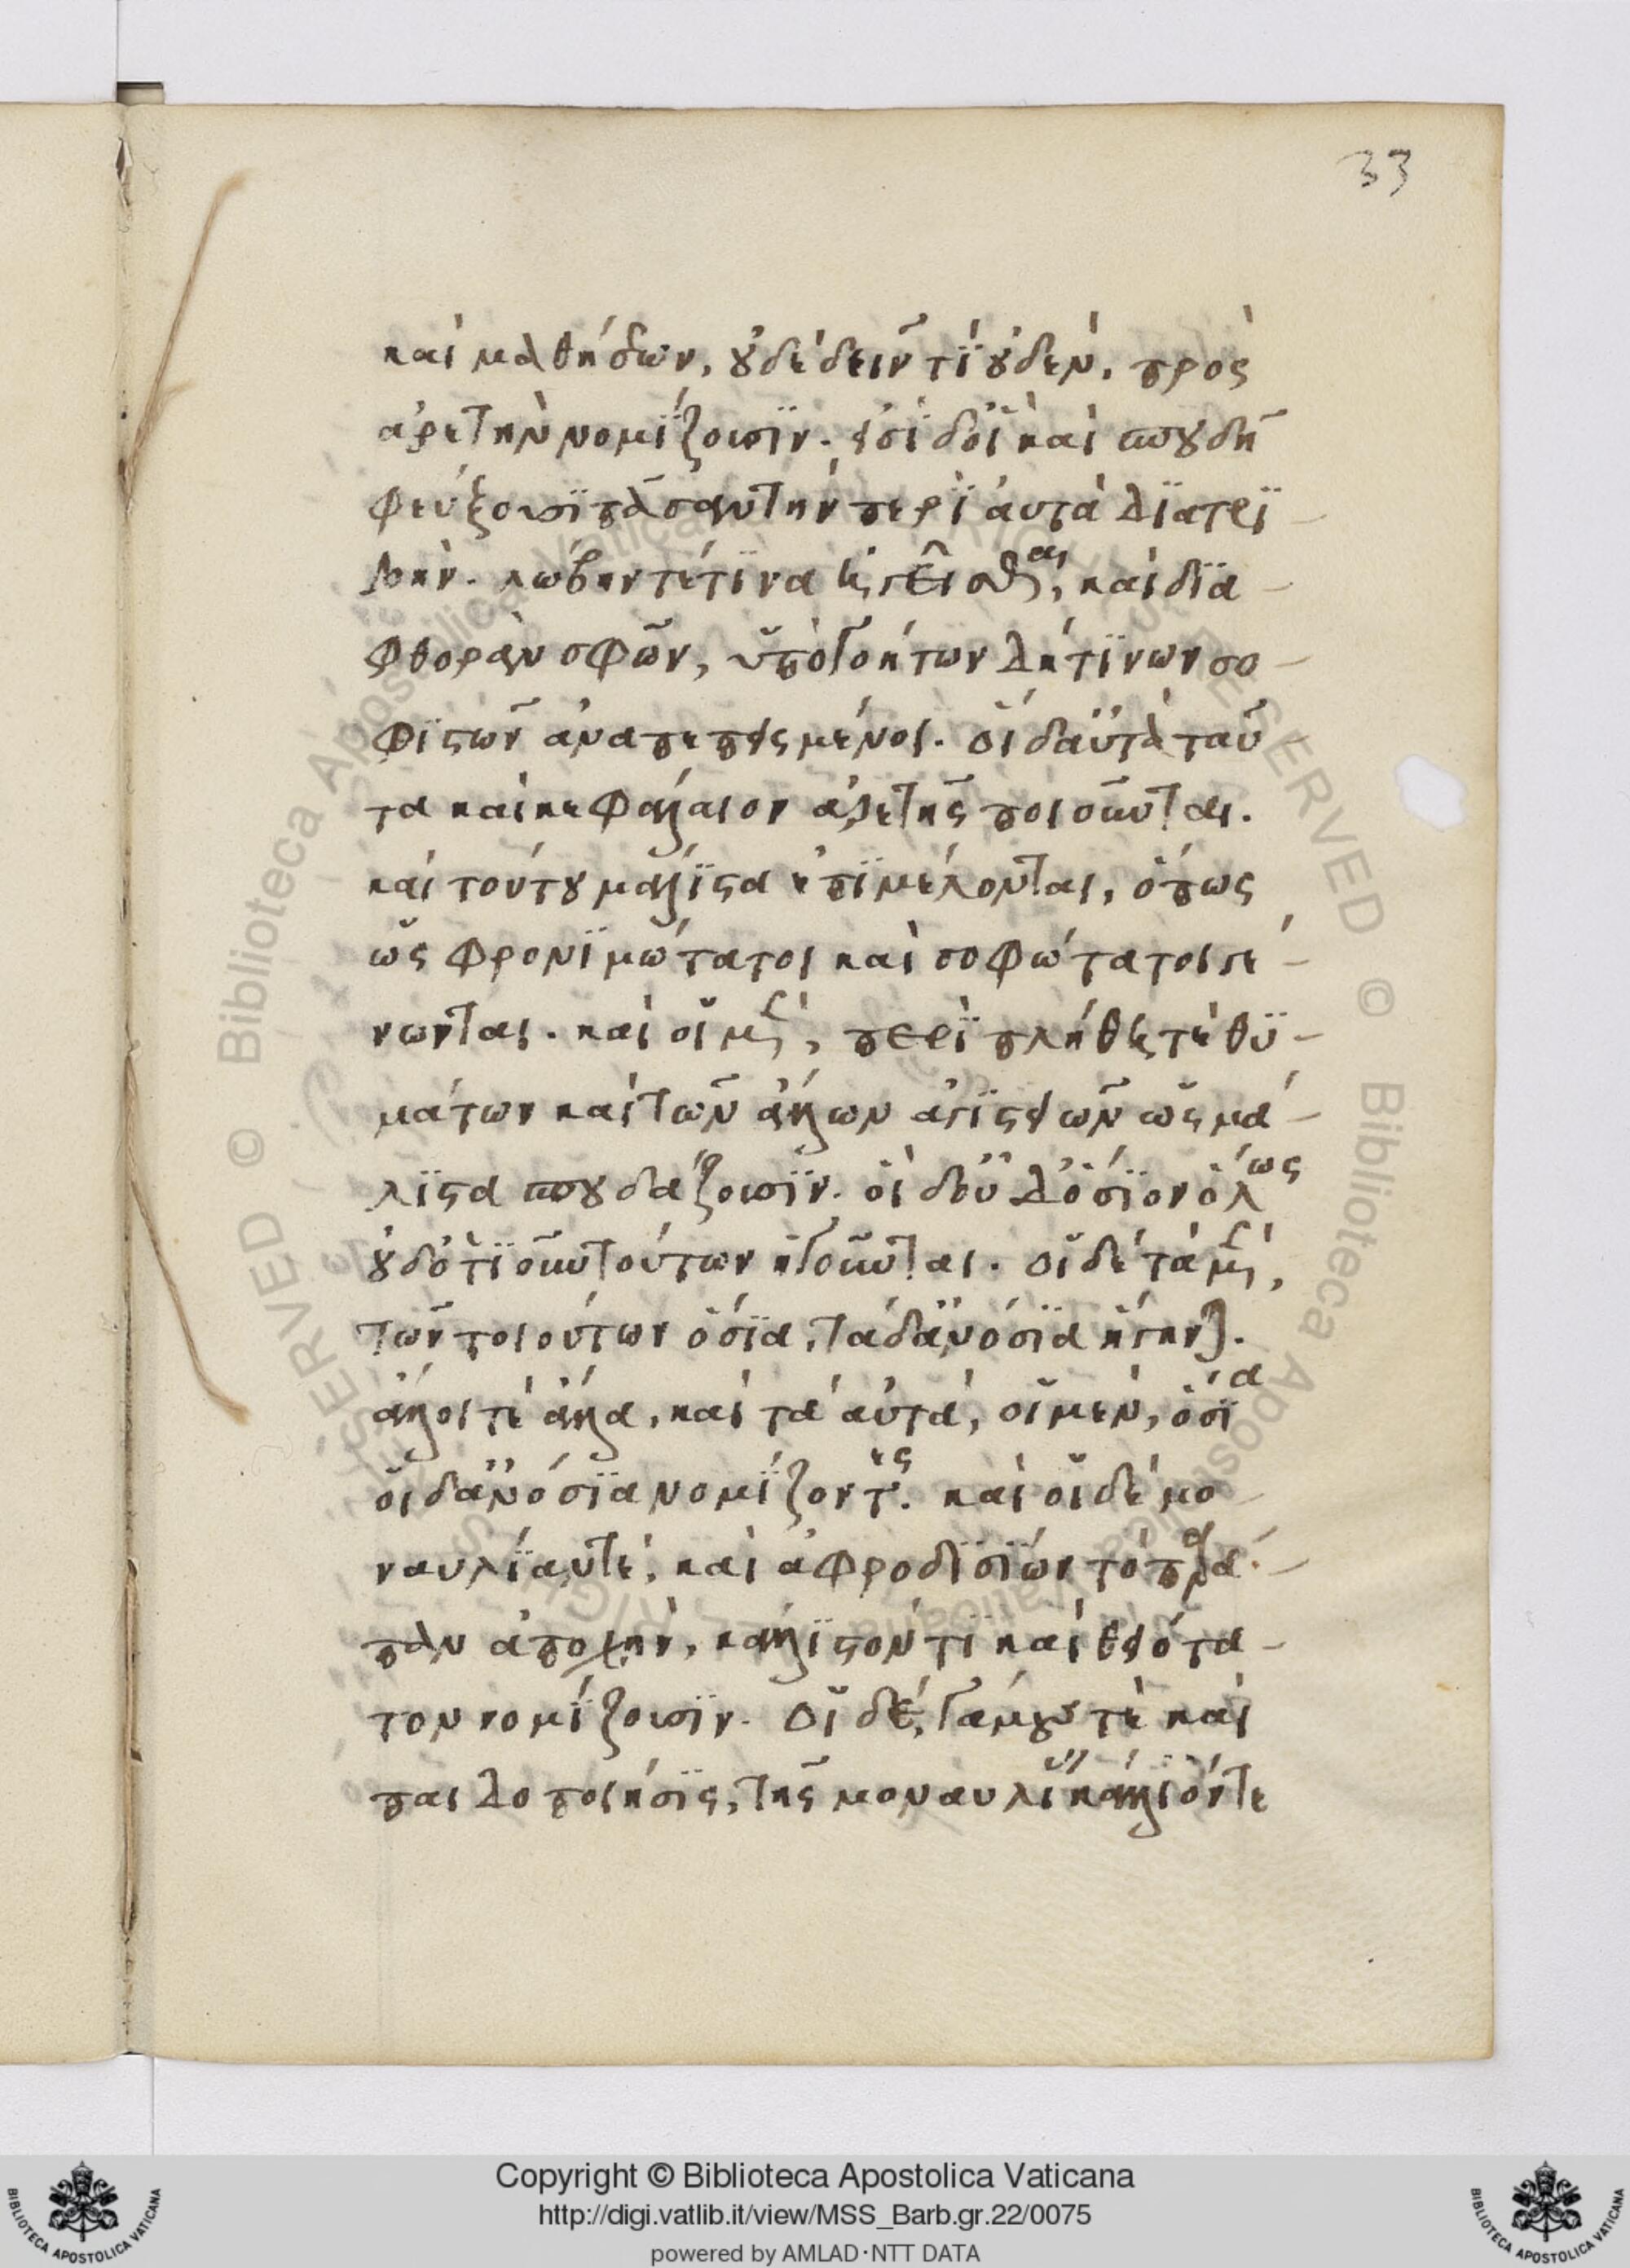 33
καὶ μαθήσεων, οὐδὲ δεῖν τὶ οὐδὲν, πρὸς
ἀρετὴν νομίζουσιν. εἰσὶ δ' οἳ καὶ σπουδῇ
φεύξουσι πᾶσαν τὴν περὶ αὐτὰ διατρι
βὴν. λώβην τέ τινα ἡγεῖσθαι, καὶ δια
φθορὰν σφῶν, ὑπὸ γοήτων δή τινων σο
φιστῶν ἀναπεπεισμένοι. οἱ δ' αὐτὰ ταῦ
τα καὶ κεφάλαιον ἀρετῆς ποιοῦνται.
καὶ τούτου μάλιστα ἐπιμέλονται, ὅπως
ὡς φρονιμώτατοι καὶ σοφώτατοι γέ
νωνται. καὶ οἱ μὲν, περὶ πλήθους τὲ θυ
μάτων καὶ τῶν ἄλλων ἁγιστειῶν ὡς μά
λιστα σπουδάζουσιν. οἱ δ' οὐδ' ὅσιον ὅλως
οὐδ' ὁτιοῦν τούτων ἡγοῦνται. οἱ δὲ τὰ μὲν,
τῶν τοιούτων ὅσια, τὰ δ' ἀνόσια ἥγηνται.
ἄλλοι τὲ ἄλλα, καὶ τὰ αὐτά, οἱ μὲν, ὅσια
οἱ δ' ἀνόσια νομίζοντες. καὶ οἱ δὲ μο
ναυλίαν τὲ, καὶ ἀφροδισίων τὸ παρά
παν ἀποχὴν, κάλλιστόν τι καὶ θειότα
τον νομίζουσιν. οἱ δὲ, γάμους τὲ καὶ
παιδοποιήσις, τῆς μοναυλίας κάλλιόν τε
Copyright © Biblioteca Apostolica Vaticana
http://digi.vatlib.it/view/MSS_Barb.gr.22/0075
powered by AMLAD·NTT DATA